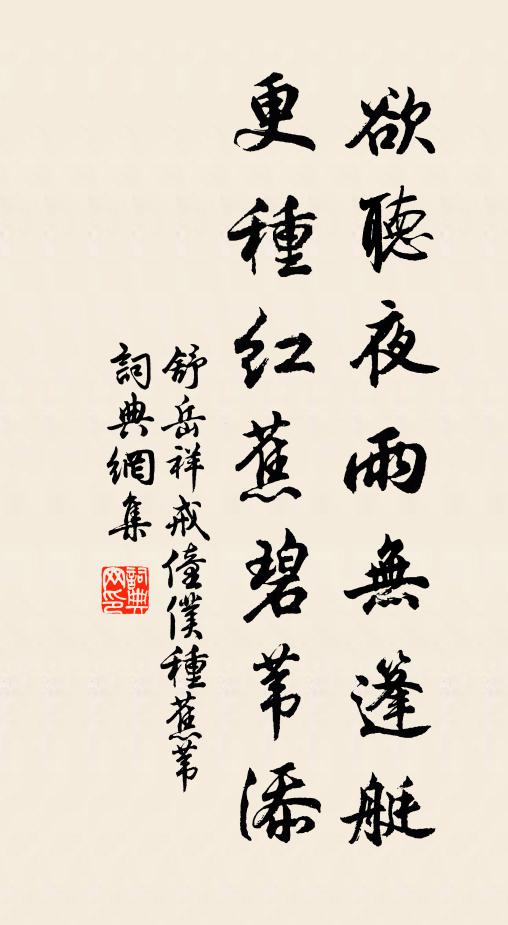 欲聽夜雨無篷艇
更種紅蕉碧苇添
舒岳祥戒僮僕種蕉苇
詞典網集
詞典网印